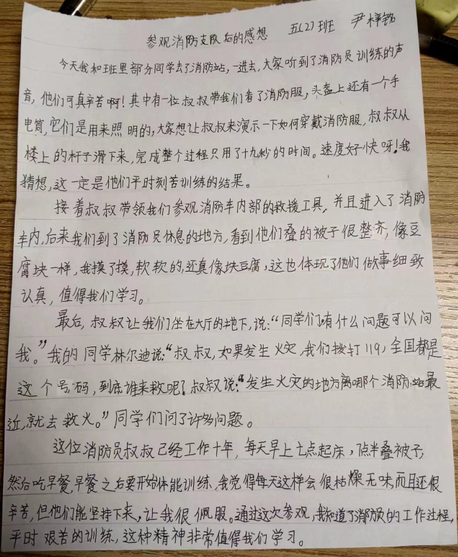 参观消防支队后的感想 五(2)班 尹梓
今天我和班里部分同学去了消防站,一进去,大家听到了消防员训练的声
音,他们可真辛苦啊!其中有一位叔叔带我们看了消防服,头盔上还有一个手
电筒,它们是用来照明的,大家想让叔叔来演示一下如何穿戴消防服,叔叔从
楼上的杆子滑下来,完成整个过程只用了十九秒的时间。速度好快呀!我
猜想,这一定是他们平时刻苦训练的结果。
接着叔叔带领我们参观消防车内部的救援工具,并且进入了消防
车内,后来我们到了消防员休息的地方,看到他们叠的被子很整齐,像豆
腐块一样,我摸了摸,软软的,还真像块豆腐,这也体现了他们做事细致
认真,值得我们学习。
最后,叔叔让我们坐在大厅的地下,说:“同学们有什么问题可以问
我。”我的同学林尔迪说:“叔叔,如果发生火灾,我们拨打119,全国都是
这个号码,到底谁来救呢?叔叔说:“发生火灾的地方离哪个消防站最
近,就去救火。”同学们问了许多问题。
这位消防员叔叔已经工作十年,每天早上七点起床,七点半叠被子,
然后吃早餐,早餐之后要开始体能训练,我觉得每天这样会很枯燥无味而且还很
辛苦,但他们能坚持下来,让我很佩服。通过这次参观,我知道了消防员的工作过程,
平时艰苦的训练,这种精神非常值得我们学习。